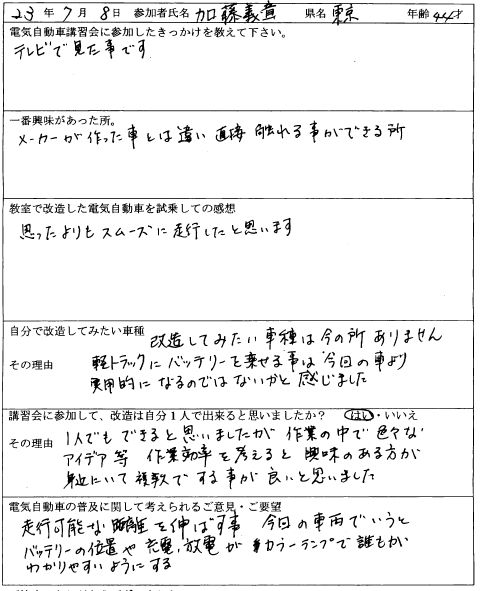 23年 7月 8日 参加者氏名 加藤義章 県名 東京 年齢 44才
電気自動車講習会に参加したきっかけを教えて下さい。
テレビで見た事です
一番興味があった所。
メーカーが作った車とは違い 直接 触れる事ができる所
教室で改造した電気自動車を試乗しての感想
思ったよりもスムーズに走行したと思います
自分で改造してみたい車種 改造してみたい車種は今の所 ありません
その理由 軽トラックにバッテリーを乗せる事は 今回の車より
実用的になるのではないかと感じました
講習会に参加して、改造は自分1人で出来ると思いましたか? はい・いいえ
その理由 1人でもできると思いましたが 作業の中で色々な
アイデア等 作業効率を考えると 興味のある方が
身近にいて複数でする事が良いと思いました
電気自動車の普及に関して考えられるご意見・ご要望
走行可能な距離を伸ばす事 今回の車両でいうと
バッテリーの位置や充電,放電が カラーランプで誰もが
わかりやすいようにする